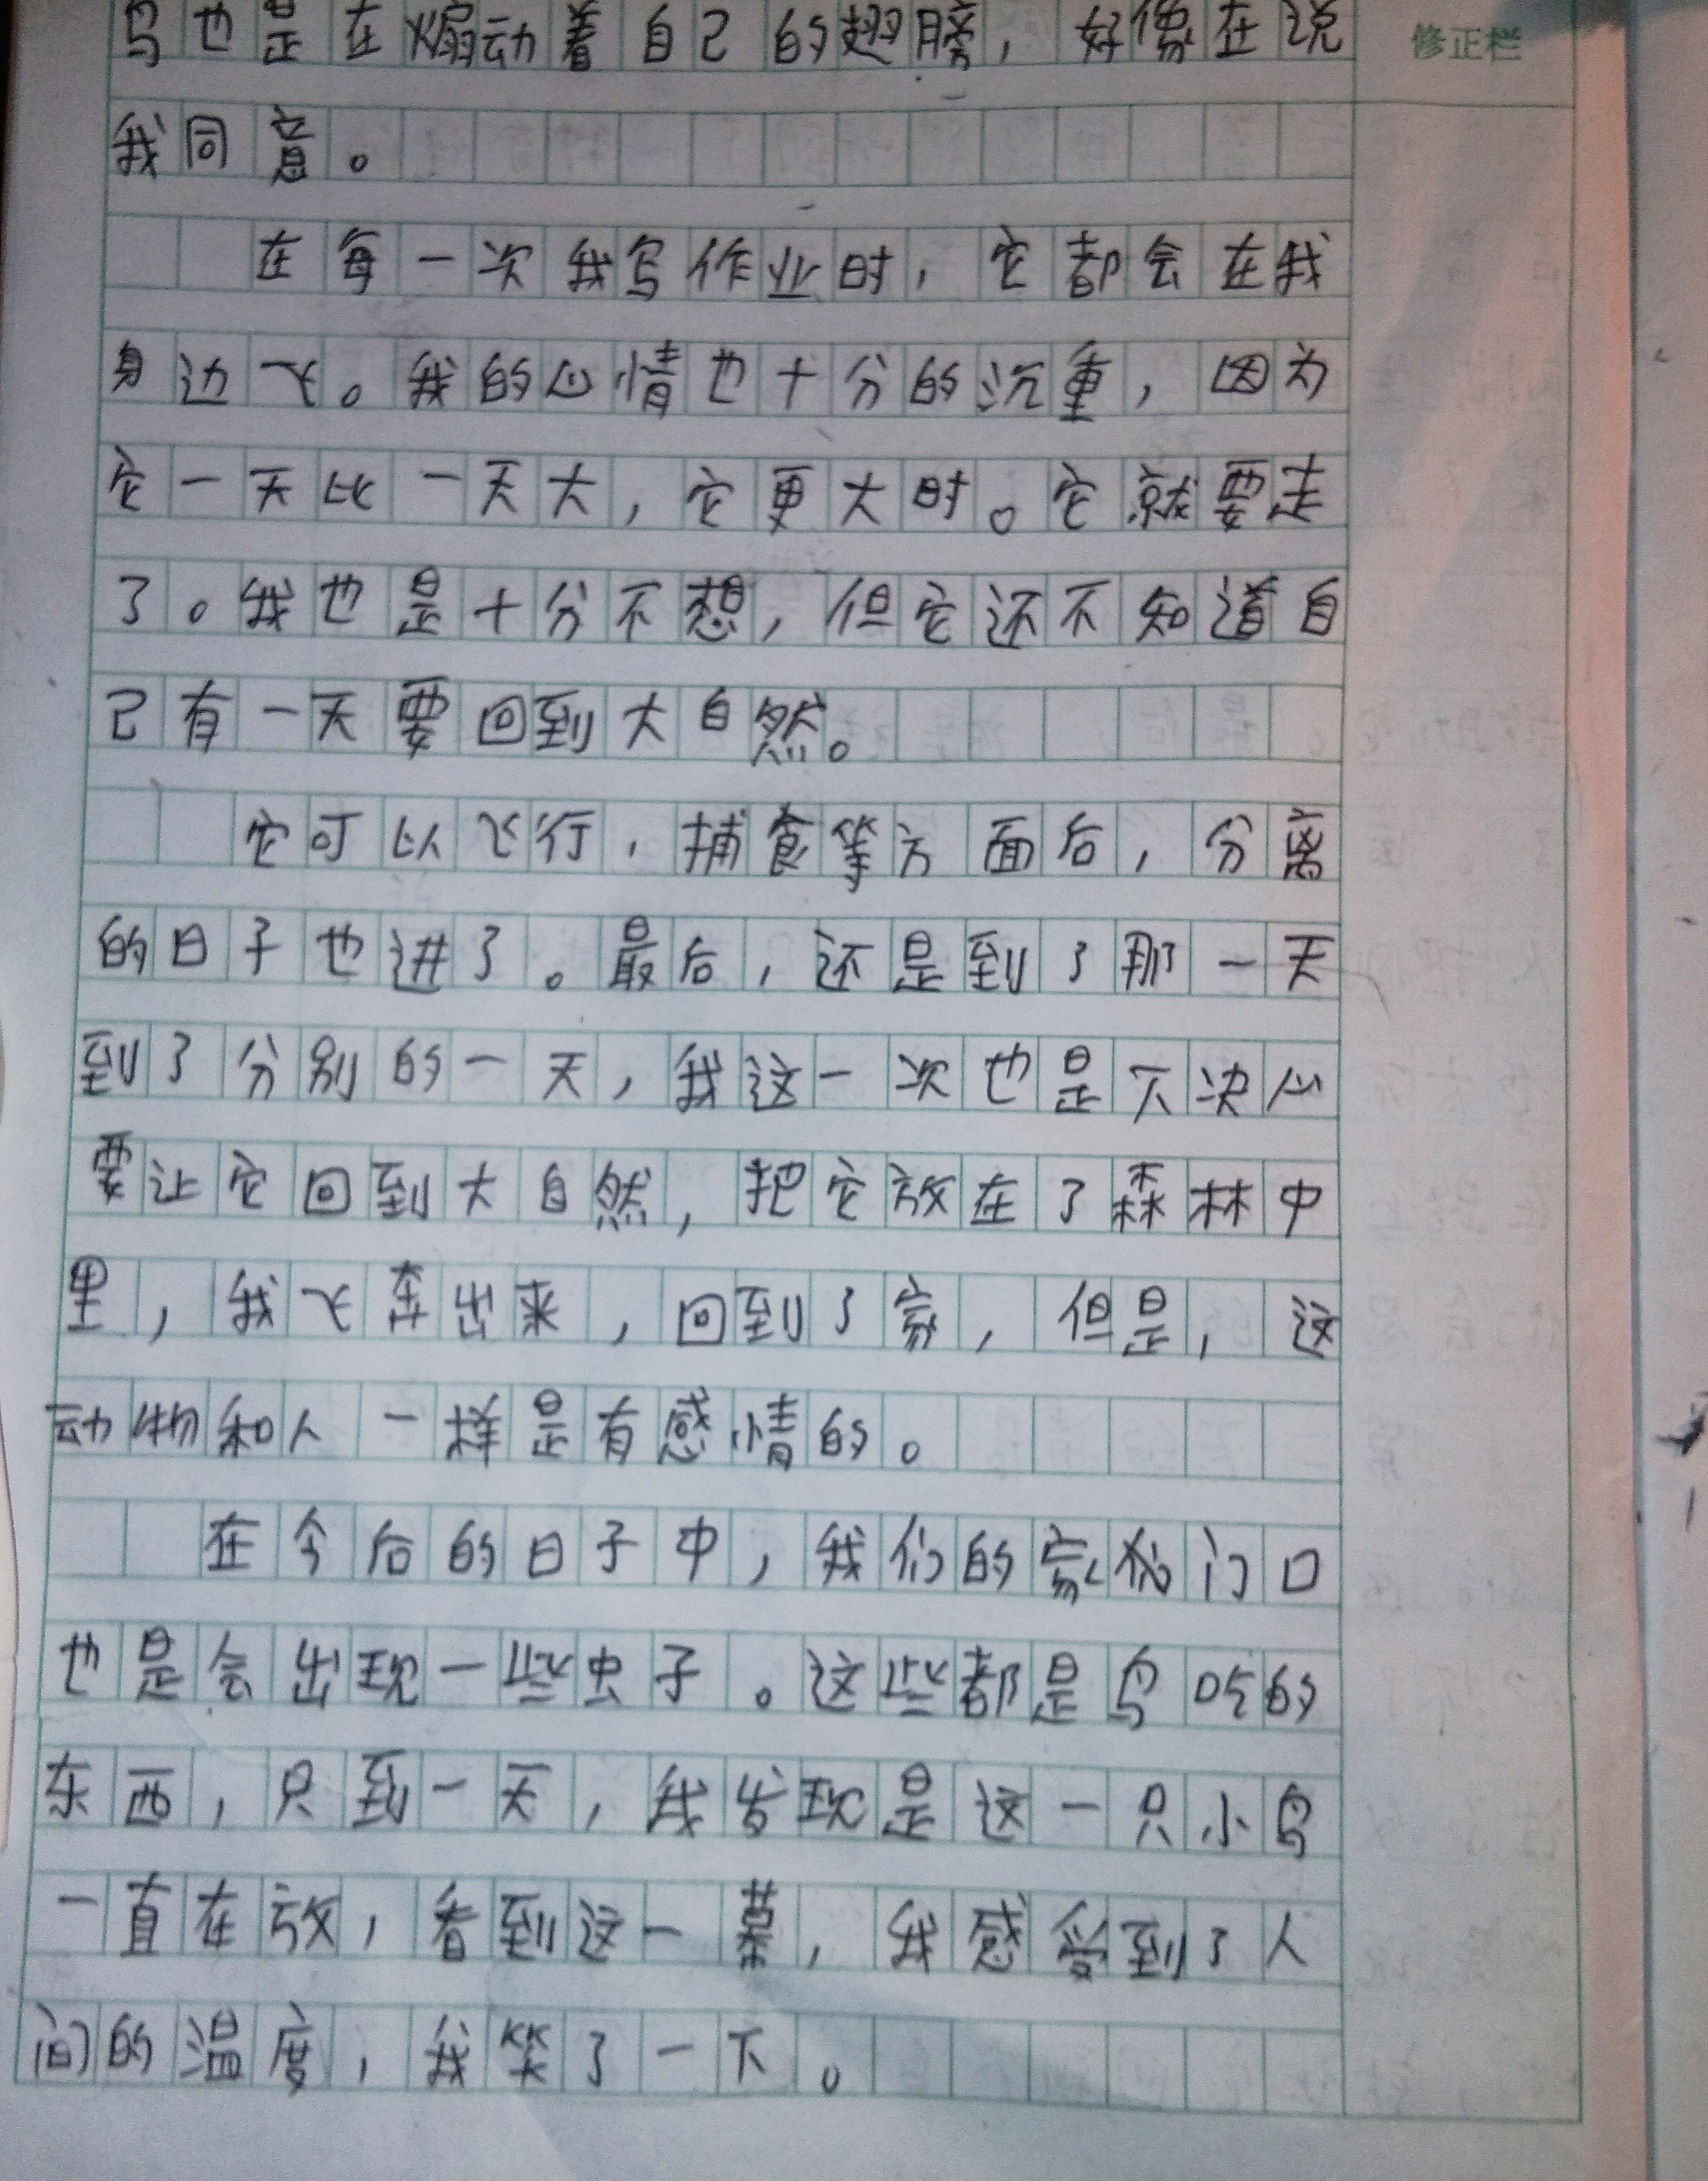 鸟也是在煽动着自己的翅膀，好像在说
修正栏
我同意。
在每一次我写作业时，它都会在我
身边飞。我的心情也十分的沉重，因为
它一天比一天大，它更大时。它就要走
了。我也是十分不想，但它还不知道自
己有一天要回到大自然。
它可以飞行，捕食等方面后，分离
的日子也进了。最后，还是到了那一天
到了分别的一天，我这一次也是下决心
要让它回到大自然，把它放在了森林中
里，我飞奔出来，回到了家，但是，这
动物和人一样是有感情的。
在今后的日子中，我们的家门口
也是会出现一些虫子。这些都是鸟吃的
东西，只到一天，我发现是这一只小鸟
一直在放，看到这一幕，我感受到了人
间的温度，我笑了一下。